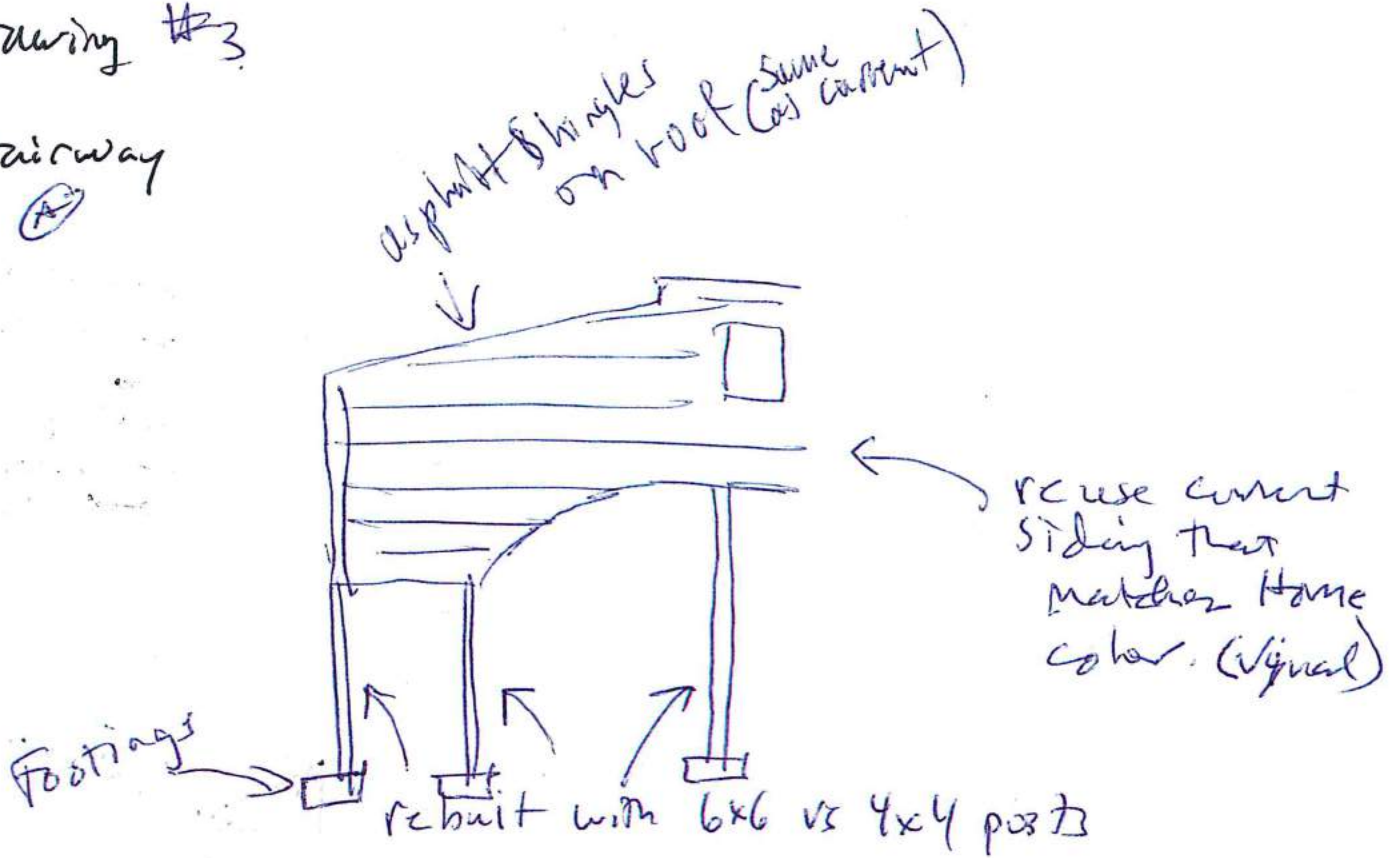 awing #3
airway
A
asphalt Shingles
on roof (same
as current)
reuse current
siding that
matches Home
color. (Vynal)
Footings
rebuilt with 6x6 vs 4x4 posts